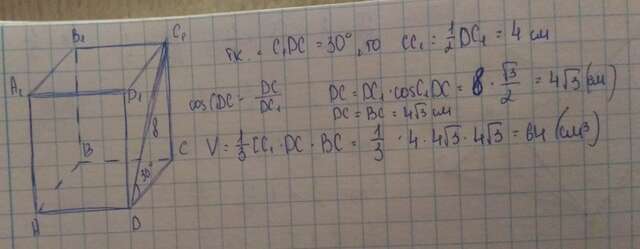 B₁
C₁
A₁
D₁
8
B
C
30°
A
D
т.к. ∠C₁DC = 30°, то CC₁ = 1/2 DC₁ = 4 см
cos C₁DC = DC/DC₁ DC = DC₁ · cos C₁DC = 8 · √3/2 = 4√3 (см)
DC = BC = 4√3 см
V = 1/3 CC₁ · DC · BC = 1/3 · 4 · 4√3 · 4√3 = 64 (см³)